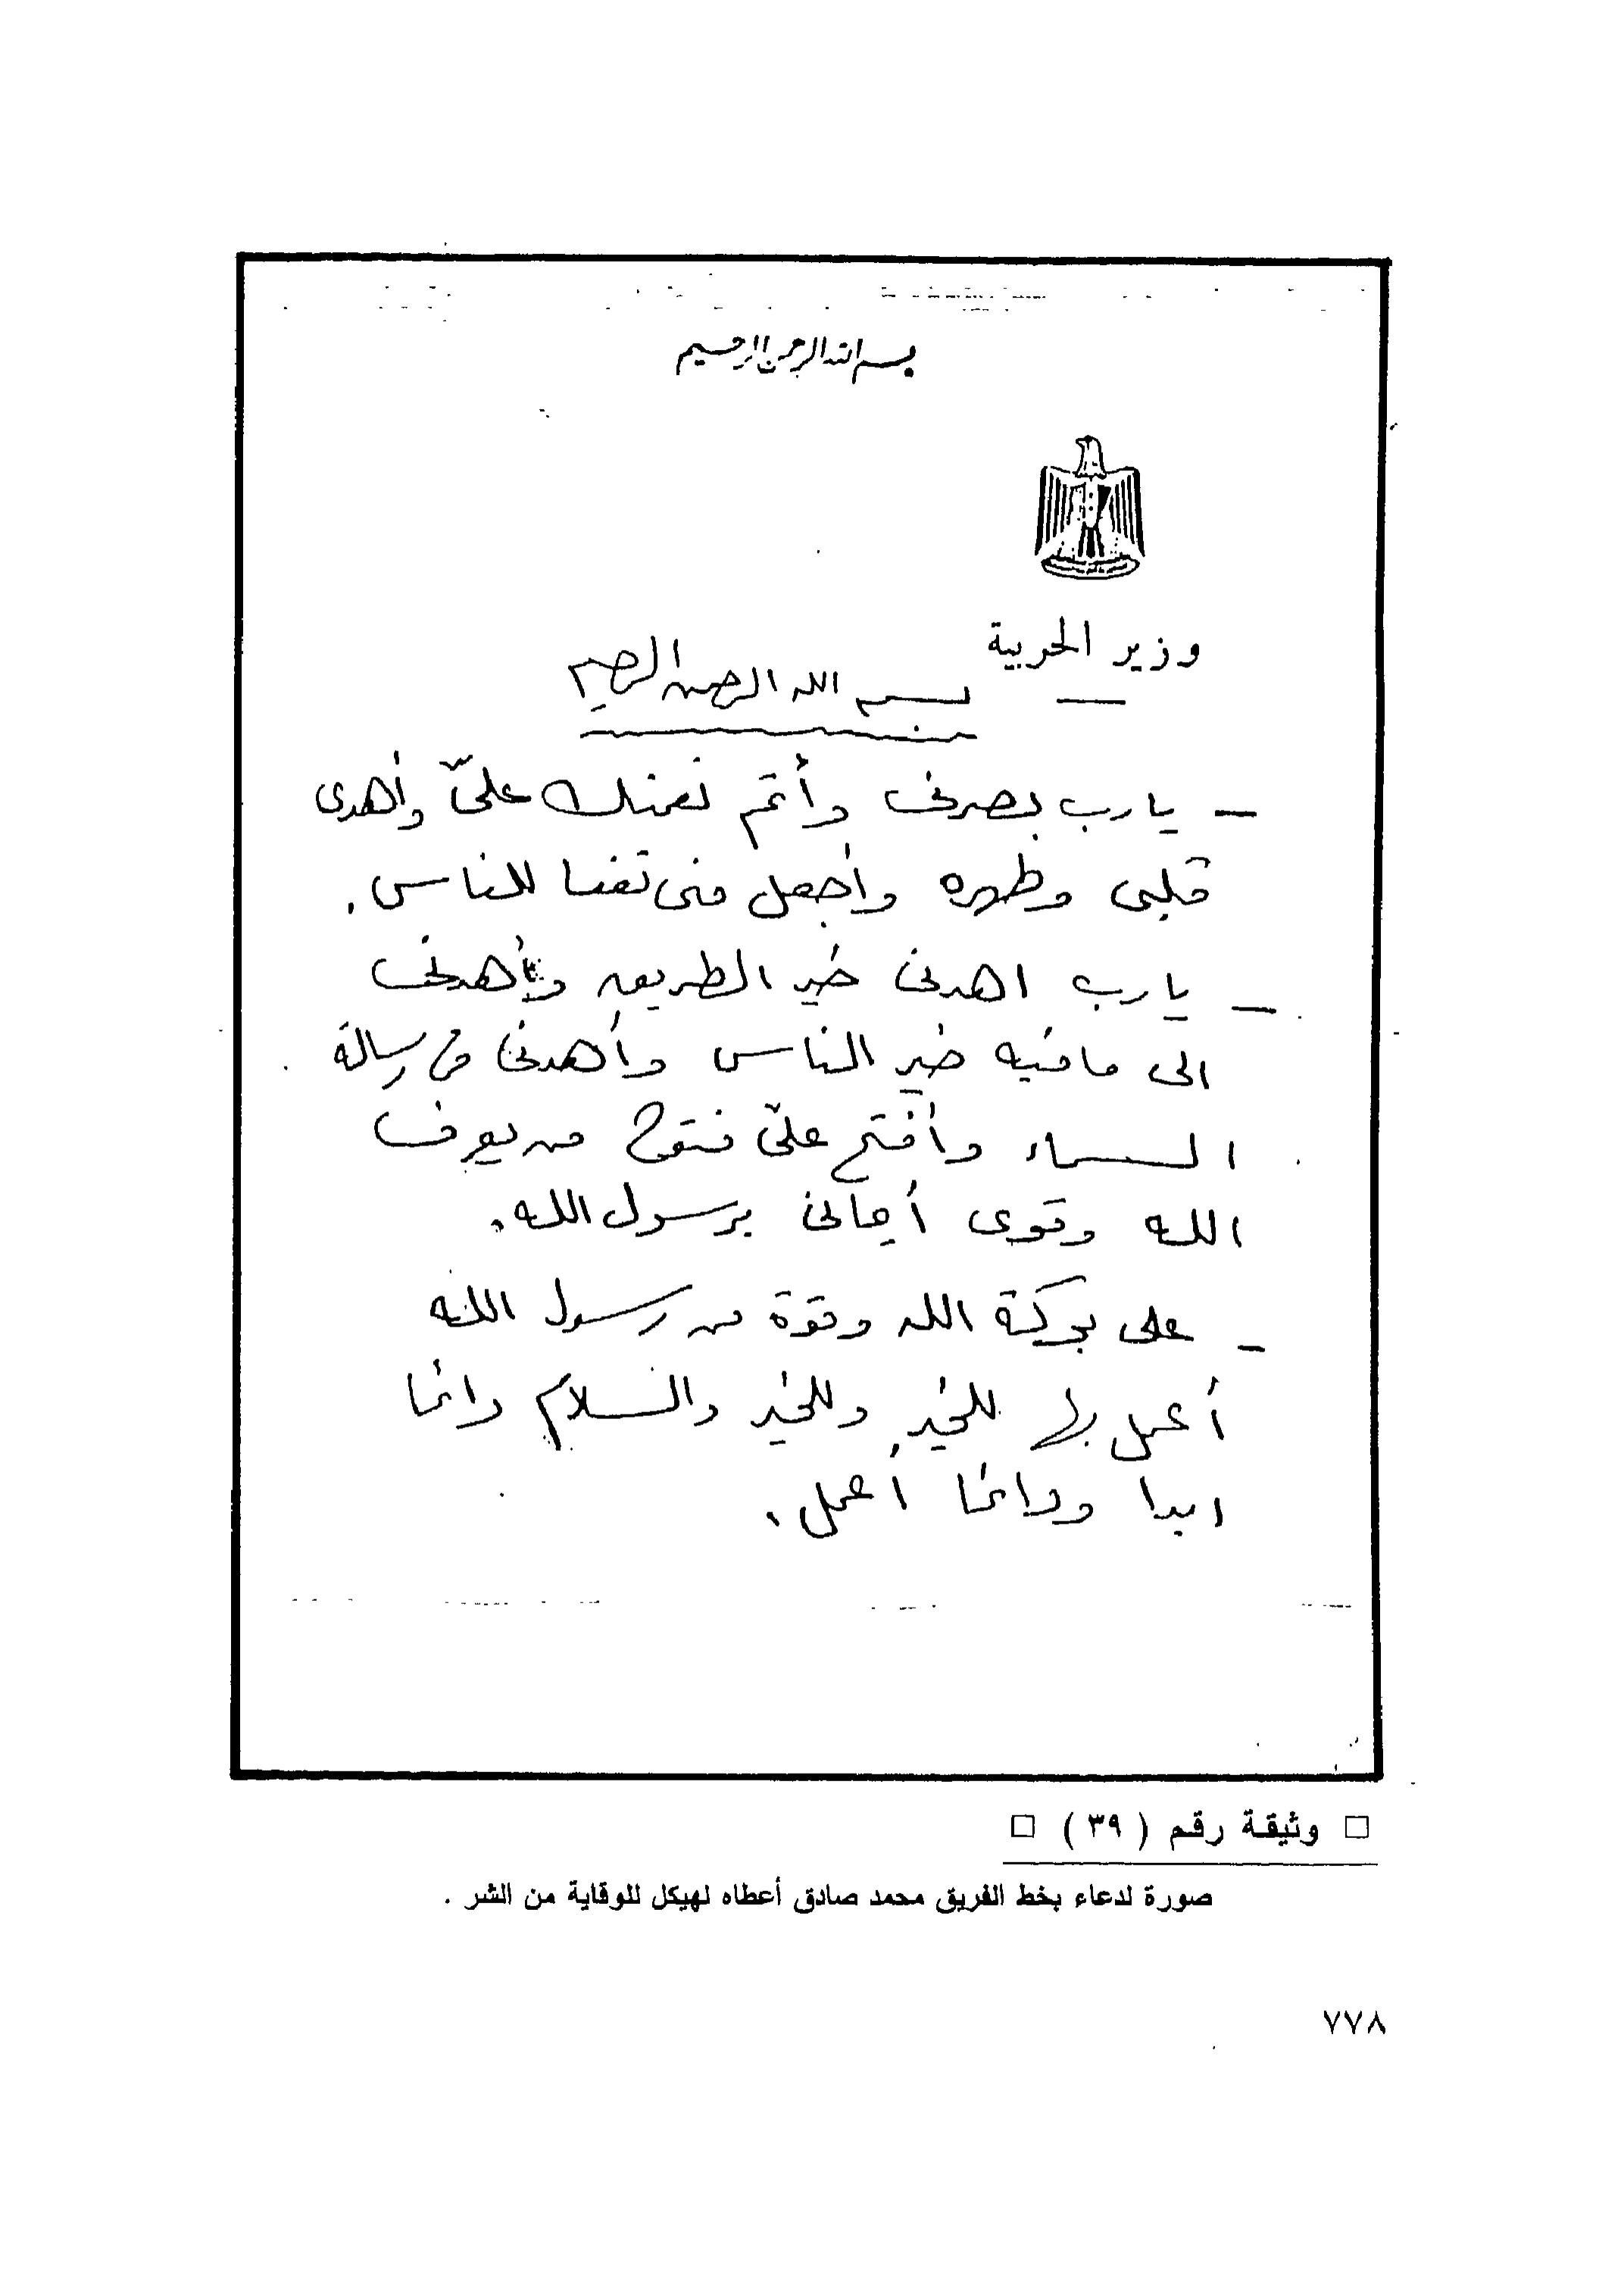 بسم الله الرحمن الرحيم
وزير الحربية
بسم الله الرحمن الرحيم
– يارب بصرنى وأتم نعمتك علىّ وأهدى
قلبى وطهره وأجعل منى نفعا للناس .
– يارب اهدنى خير الطريق وأهدنى
الى مافيه خير الناس وأهدنى من رسالة
السماء وأفتح علىّ فتوح من يعرف
الله وقوى أيمانى برسول الله .
– على بركة الله وقوة من رسول الله
أعمل بها للخير وللخير والسلام دائما
ابدا ودائما أعمل .
□ وثيقة رقم ( ٣٩ ) □
صورة لدعاء بخط الفريق محمد صادق أعطاه لهيكل للوقاية من الشر .
٧٧٨